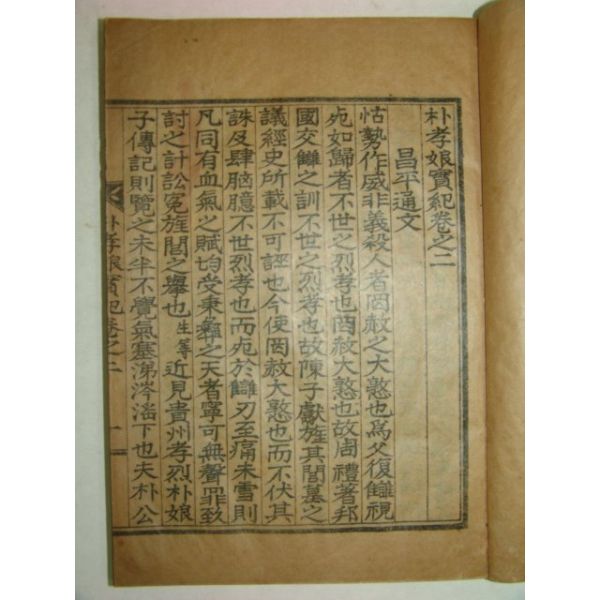 朴孝娘實紀卷之二
昌平通文
怙勢作威非義殺人者罔赦之大憝也爲父復讎視
死如歸者不世之烈孝也罔赦大憝也故周禮著邦
國交讎之訓不世烈孝也故陳子獻旌其閭墓之
議經史所載不可誣也今使罔赦大憝也而不伏其
誅叐肆腦臆不世烈孝也而死於讎刃至痛未雪則
凡同有血氣之賦均受秉彝之天者寧可無聲罪致
討之計訟冤旌閭之擧也生等近見貴州孝烈朴娘
子傳記則覽之未半不覺氣塞涕泗滛下也夫朴公
朴孝娘實紀卷之二
一